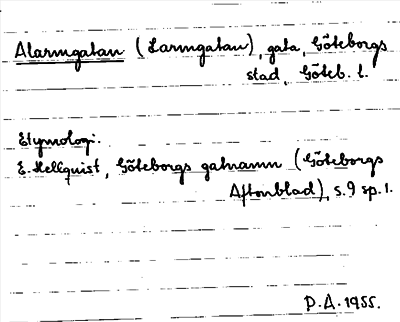 Alarmgatan (Larmgatan), gata, Göteborgs
stad, Göteb. l.
Etymologi.
E. Hellquist, Göteborgs gatnamn (Göteborgs
Aftonblad), s. 9 sp. 1.
P.A. 1955.